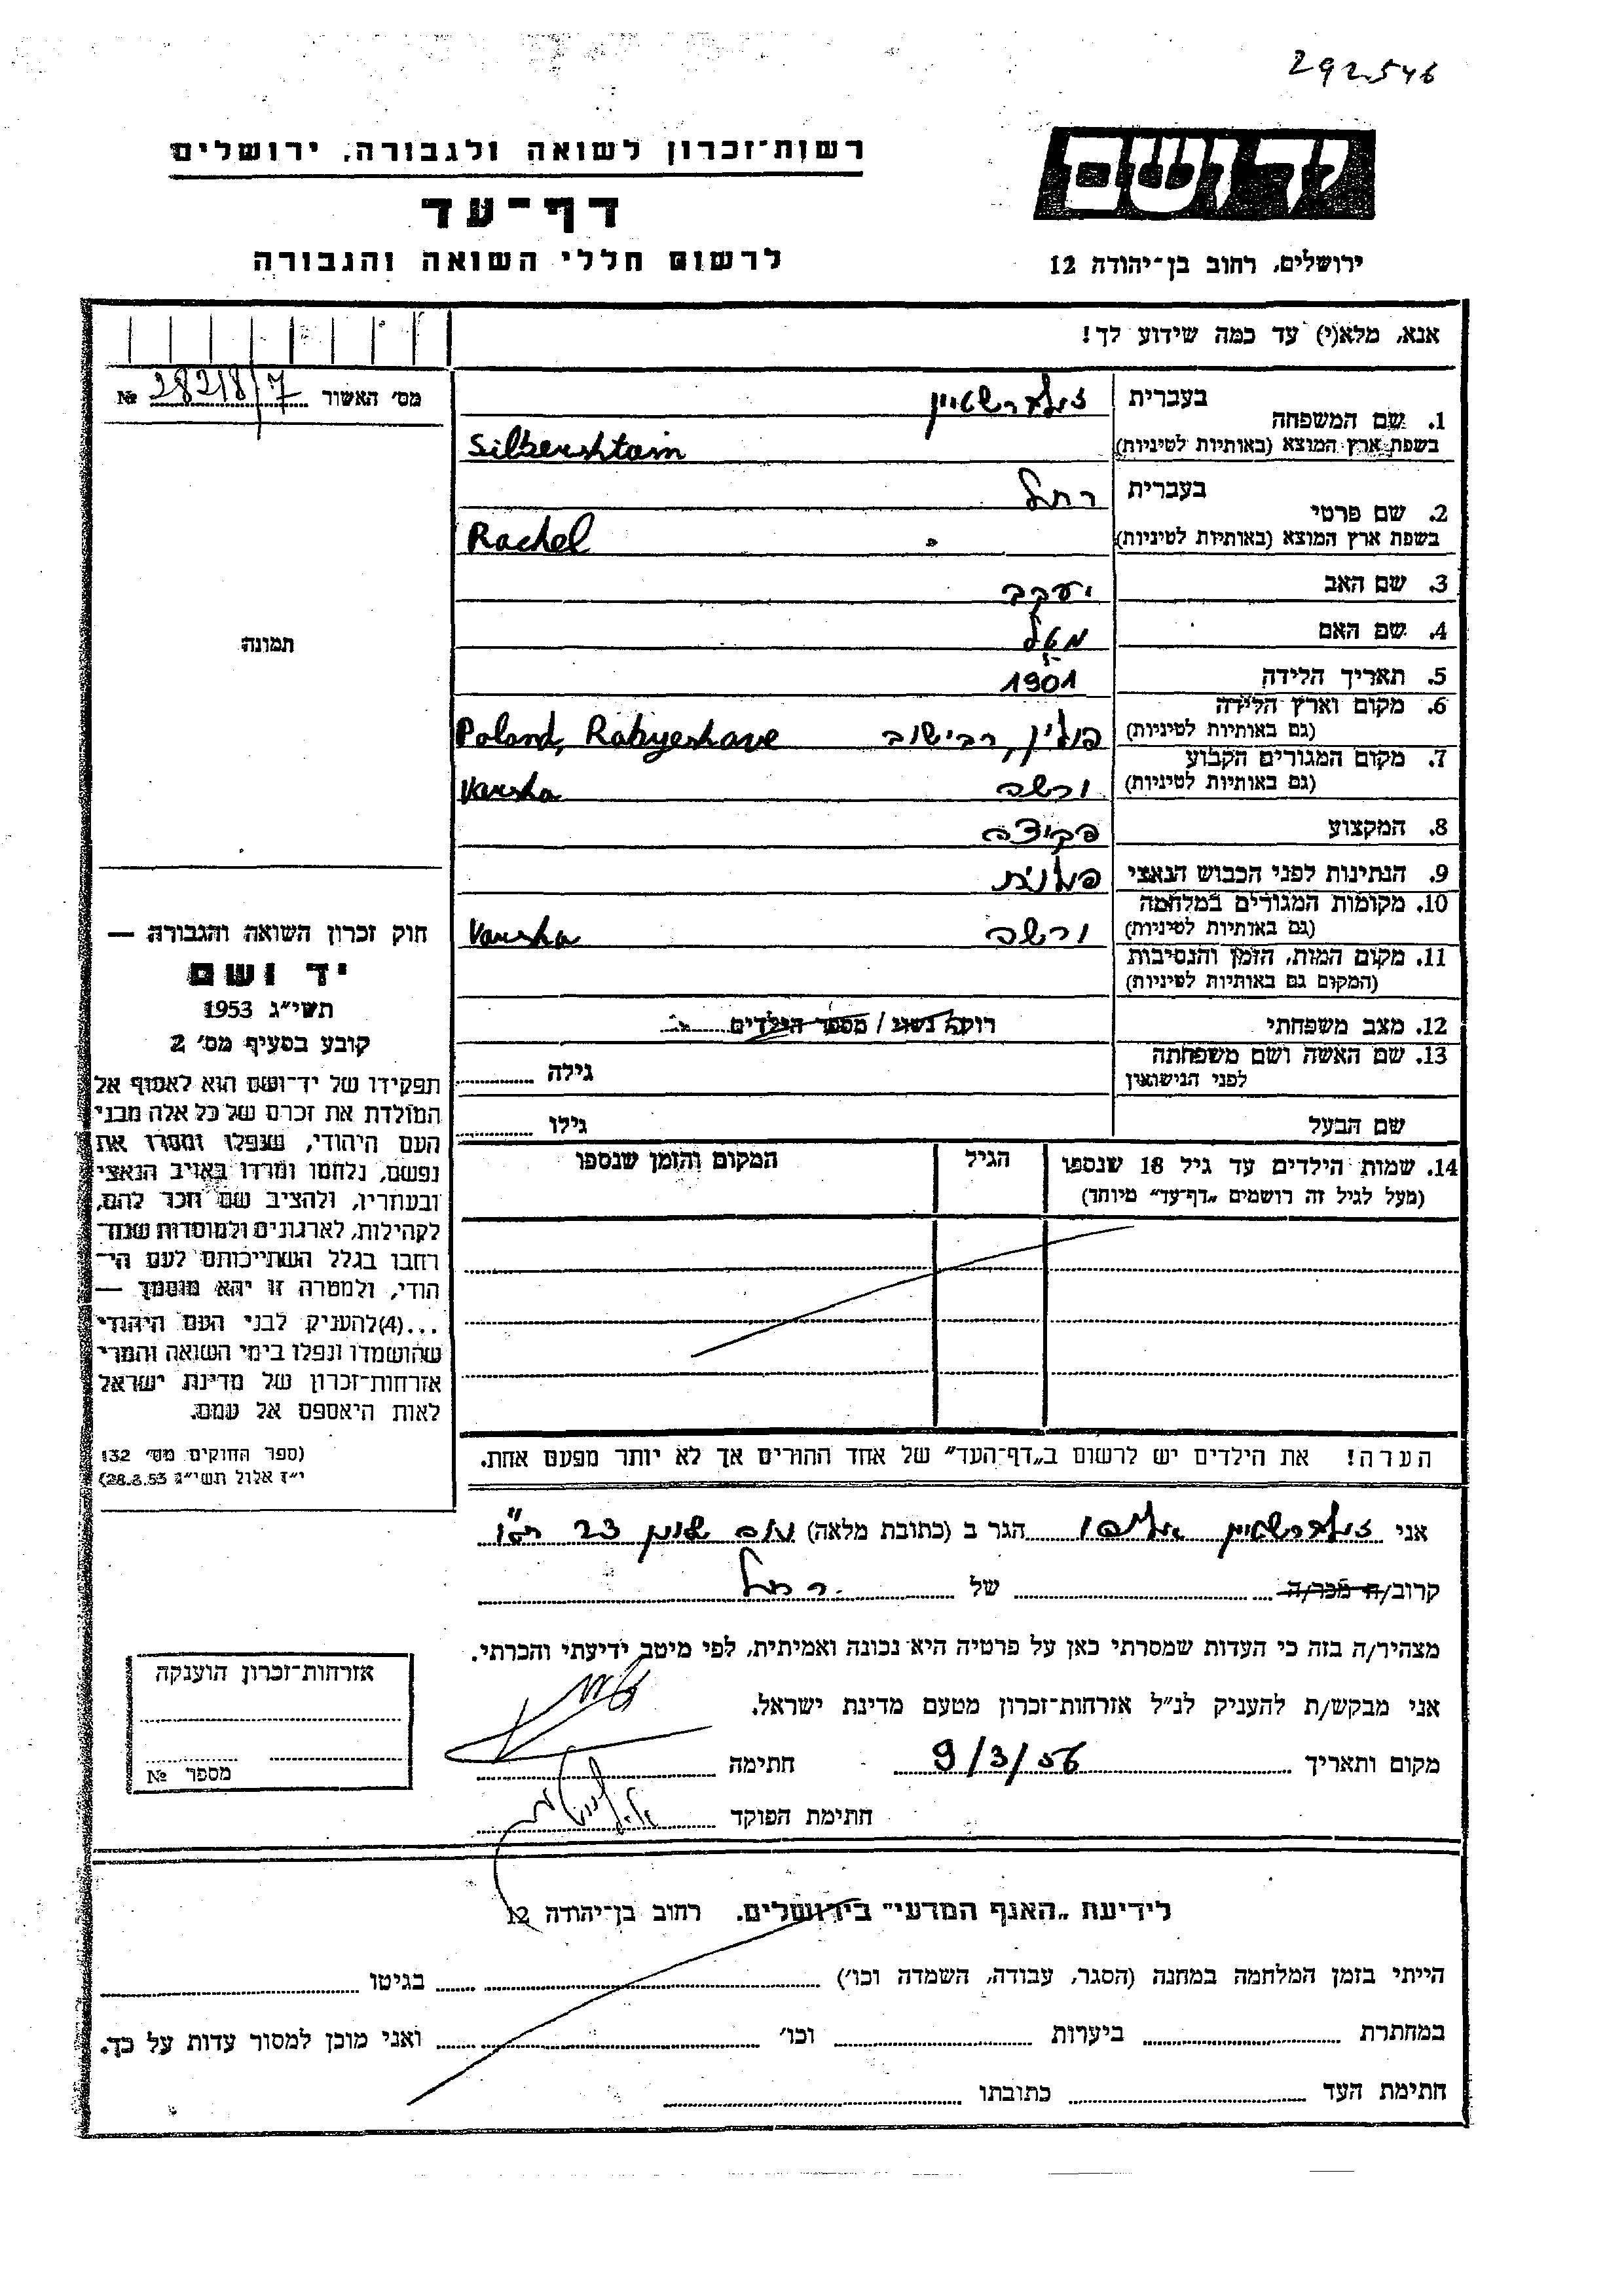 292546
יד ושם
ירושלים, רחוב בן־יהודה 12
רשות־זכרון לשואה ולגבורה, ירושלים
דף־עד
לרשום חללי השואה והגבורה
אנא, מלא(י) עד כמה שידוע לך!
מס׳ האשור № 28218/7
1. שם המשפחה בעברית זילברשטיין
בשפת ארץ המוצא (באותיות לטיניות) Silbershtain
2. שם פרטי בעברית רחל
בשפת ארץ המוצא (באותיות לטיניות) Rachel
3. שם האב יעקב
4. שם האם
5. תאריך הלידה 1901
6. מקום וארץ הלידה
(גם באותיות לטיניות) פולין, רבישוב Poland, Rabyeshave
7. מקום המגורים הקבוע
(גם באותיות לטיניות) ורשה Varsha
8. המקצוע פקידה
9. הנתינות לפני הכבוש הנאצי פולנית
10. מקומות המגורים במלחמה
(גם באותיות לטיניות) ורשה Varsha
11. מקום המות, הזמן והנסיבות
(המקום גם באותיות לטיניות)
12. מצב משפחתי רוקה נשוי / מספר הילדים
13. שם האשה ושם משפחתה
לפני הנישואין גילה
שם הבעל גילו
14. שמות הילדים עד גיל 18 שנספו הגיל המקום והזמן שנספו
(מעל לגיל זה רושמים „דף־עד״ מיוחד)
הערה! את הילדים יש לרשום ב„דף־העד״ של אחד ההורים אך לא יותר מפעם אחת.
תמונה
חוק זכרון השואה והגבורה —
יד ושם
תשי״ג 1953
קובע בסעיף מס׳ 2
תפקידו של יד־ושם הוא לאסוף אל
המולדת את זכרם של כל אלה מבני
העם היהודי, שנפלו ומסרו את
נפשם, נלחמו ומרדו באויב הנאצי
ובעוזריו, ולהציב שם וזכר להם,
לקהילות, לארגונים ולמוסדות שנח־
רבו בגלל השתייכותם לעם הי־
הודי, ולמטרה זו יהא מוסמך —
...(4)להעניק לבני העם היהודי
שהושמדו ונפלו בימי השואה והמרי
אזרחות־זכרון של מדינת ישראל
לאות היאספם אל עמם.
(ספר החוקים מס׳ 132
י״ז אלול תשי״ג 28.8.53)
אני זילברשטיין הגר ב (כתובת מלאה) 23
קרוב/ה מכר/ה של רחל
מצהיר/ה בזה כי העדות שמסרתי כאן על פרטיה היא נכונה ואמיתית, לפי מיטב ידיעתי והכרתי.
אני מבקש/ת להעניק לנ״ל אזרחות־זכרון מטעם מדינת ישראל.
מקום ותאריך 9/3/56 חתימה
חתימת הפוקד
אזרחות־זכרון הוענקה
מספר №
לידיעת „האגף המדעי״ בירושלים. רחוב בן־יהודה 12
הייתי בזמן המלחמה במחנה (הסגר, עבודה, השמדה וכו׳) בגיטו
במחתרת ביערות וכו׳ ואני מוכן למסור עדות על כך.
חתימת העד כתובתו